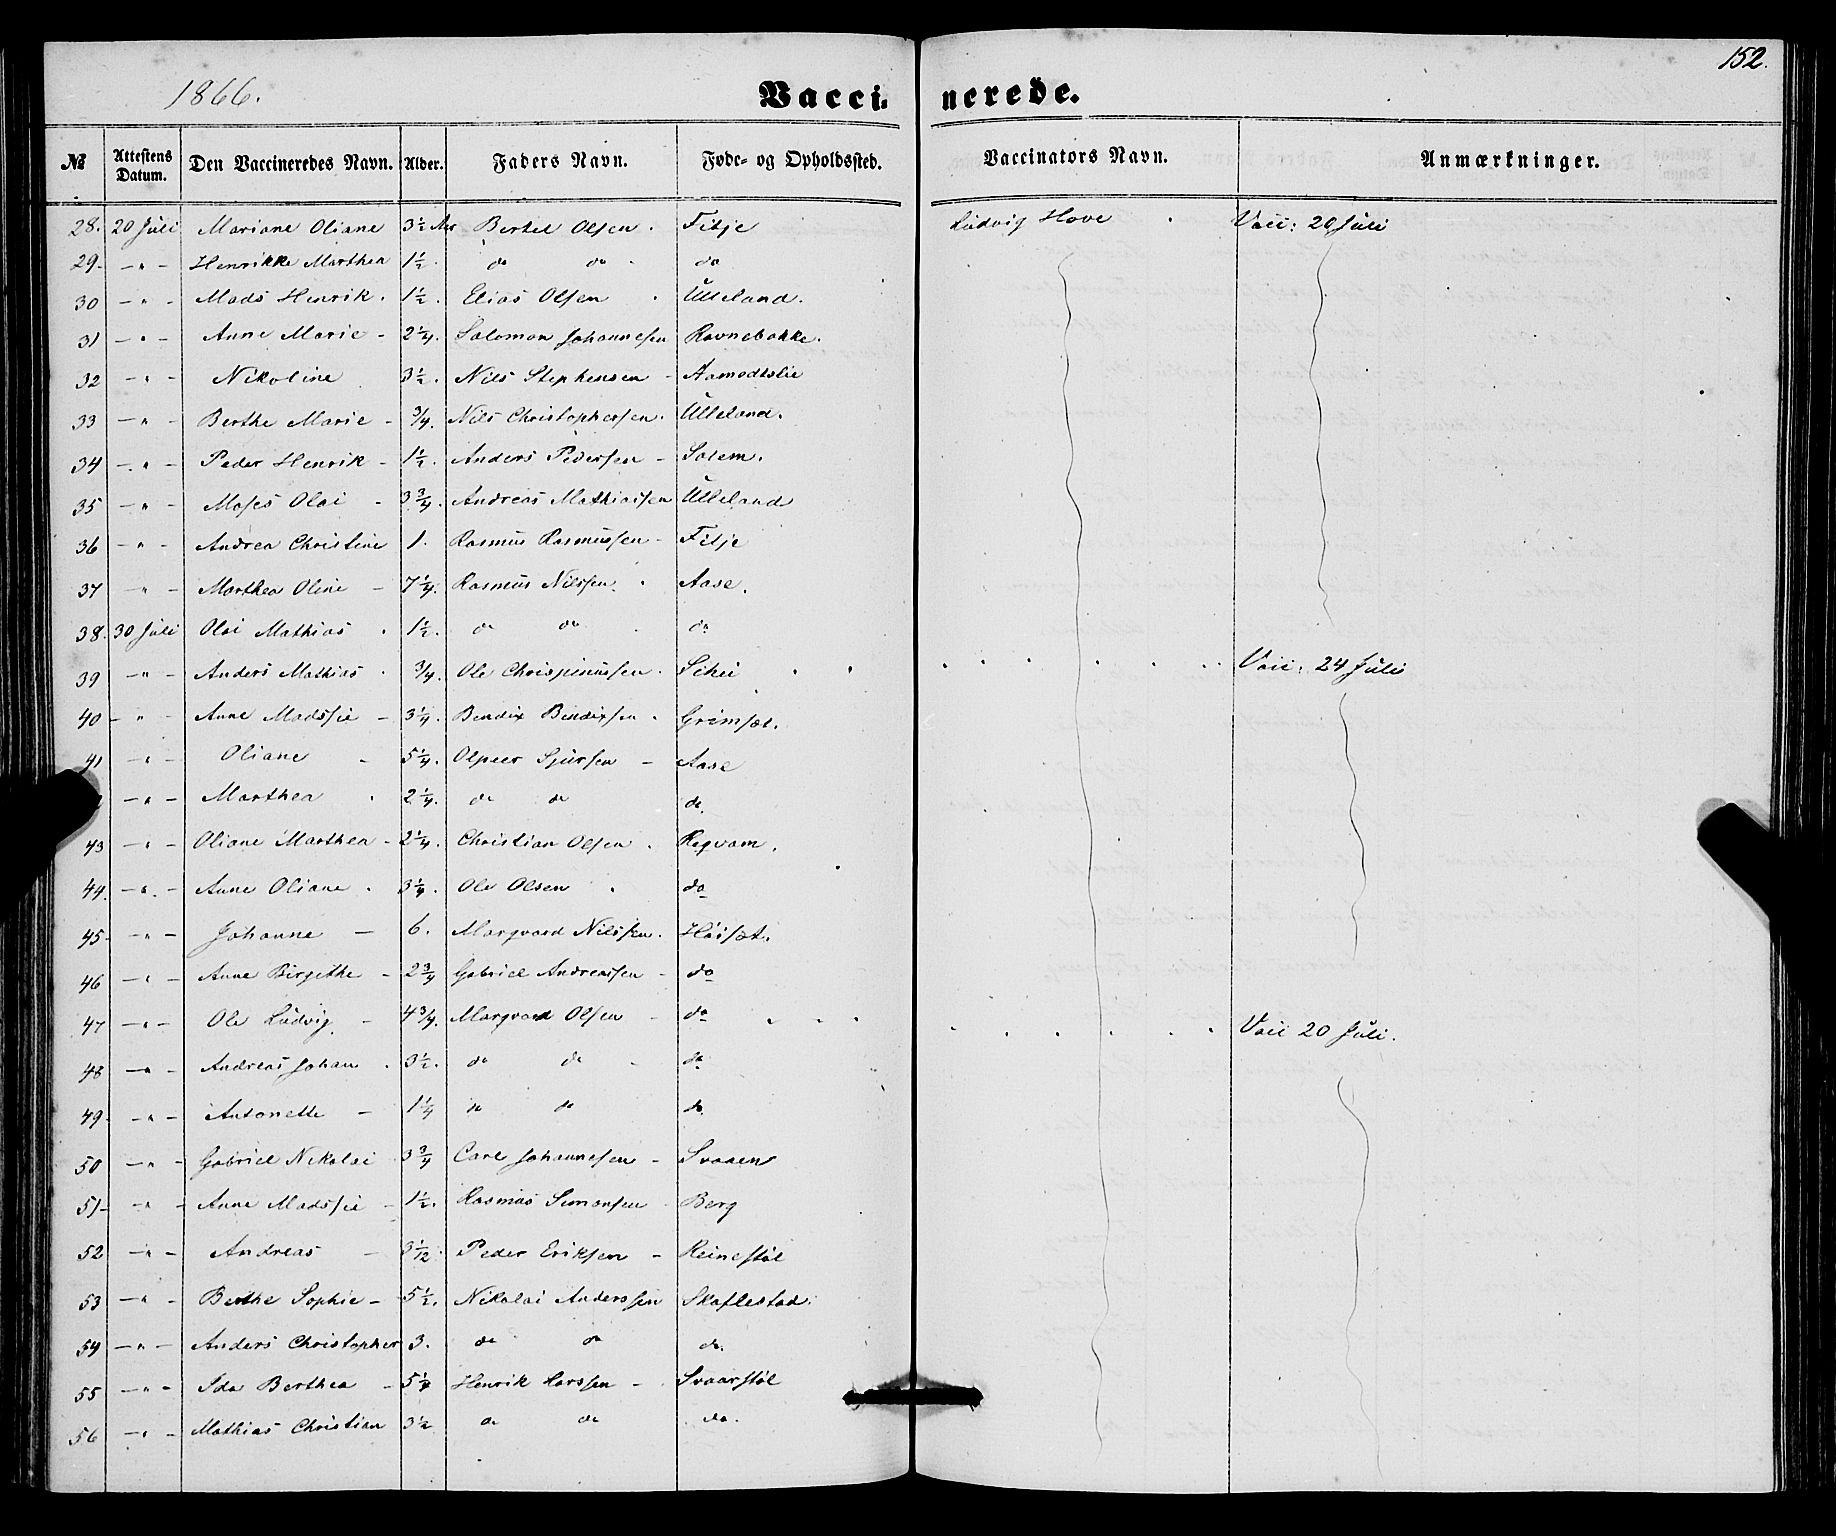 152.
1866. Vaccinerede.
№ Attestens Datum. Den Vaccineredes Navn. Alder. Faders Navn. Føde- og Opholdssted. Vaccinators Navn. Anmærkninger.
28. 20 Juli Mariane Oliane 3½ Aar Bertel Olsen. Fitje Ludvig Hove Vacc: 20 Juli
29. - " - Henrikke Marthea 1½. do do. do
30 - " - Mads Henrik. 1½. Elias Olsen. Ulleland.
31 - " - Anne Marie - 2¼. Salomon Johannesen Ravnebakke.
32 - " - Nikoline 3½. Nils Stephensen - Aamodtslie
33 - " - Berthe Marie - ¾. Nils Christophersen. Ulleland.
34 - " - Peder Henrik - 1½. Anders Pedersen - Solem.
35 - " - Moses Olai - 3¾. Andreas Mathiassen Ulleland
36 - " - Andrea Christine 1. Rasmus Rasmussen - Fitje
37 - " - Marthea Oline - 7¼. Rasmus Nilssen. Aase.
38. 30 Juli Olai Mathias. 1½. do do. do
39 - " - Anders Mathias. ¾. Ole Chrispinussen. Schei . . . . . . . . . Vacc: 24 Juli
40 - " - Anne Madssie - 3¼. Bendix Bendixsen. Grimset.
41 - " - Oliane - 5¼. Sjursen - Aase
- " - Marthea. 2¼. do do do.
43 - " - Oliane Marthea - 2¼. Christian Olsen. Reqvam.
44. - " - Anne Oliane. 3¼. Ole Olsen. do
45 - " - Johanne - 6. Marqvard Nilssen. Höiset.
46 - " - Anne Birgithe - 2¾ Gabriel Andreassen - do
47 - " - Ole Ludvig - 4¾. Marqvard Olsen - do . . . . . . . . Vacc 20 Juli.
48 - " - Andreas Johan. 3½. do do - do
49. - " - Antonette - 1¼ do do do.
50 - " - Gabriel Nikolai 3¾ Carl Johannesen - Svaaen
51 - " - Anne Madssie - 1½. Rasmus Simonsen. Berg
52 - " - Andreas - Peder Eriksen - Reinestöl
53 - " - Berthe Sophie - 5½. Nikolai Anderssen Skaflestad.
54 - " - Anders Christopher 3. do do do.
55 - " - Ida Berthea - 5¼ Henrik Larssen - Svaarstöl
56 - " - Mathias Christian 3½ do do do.